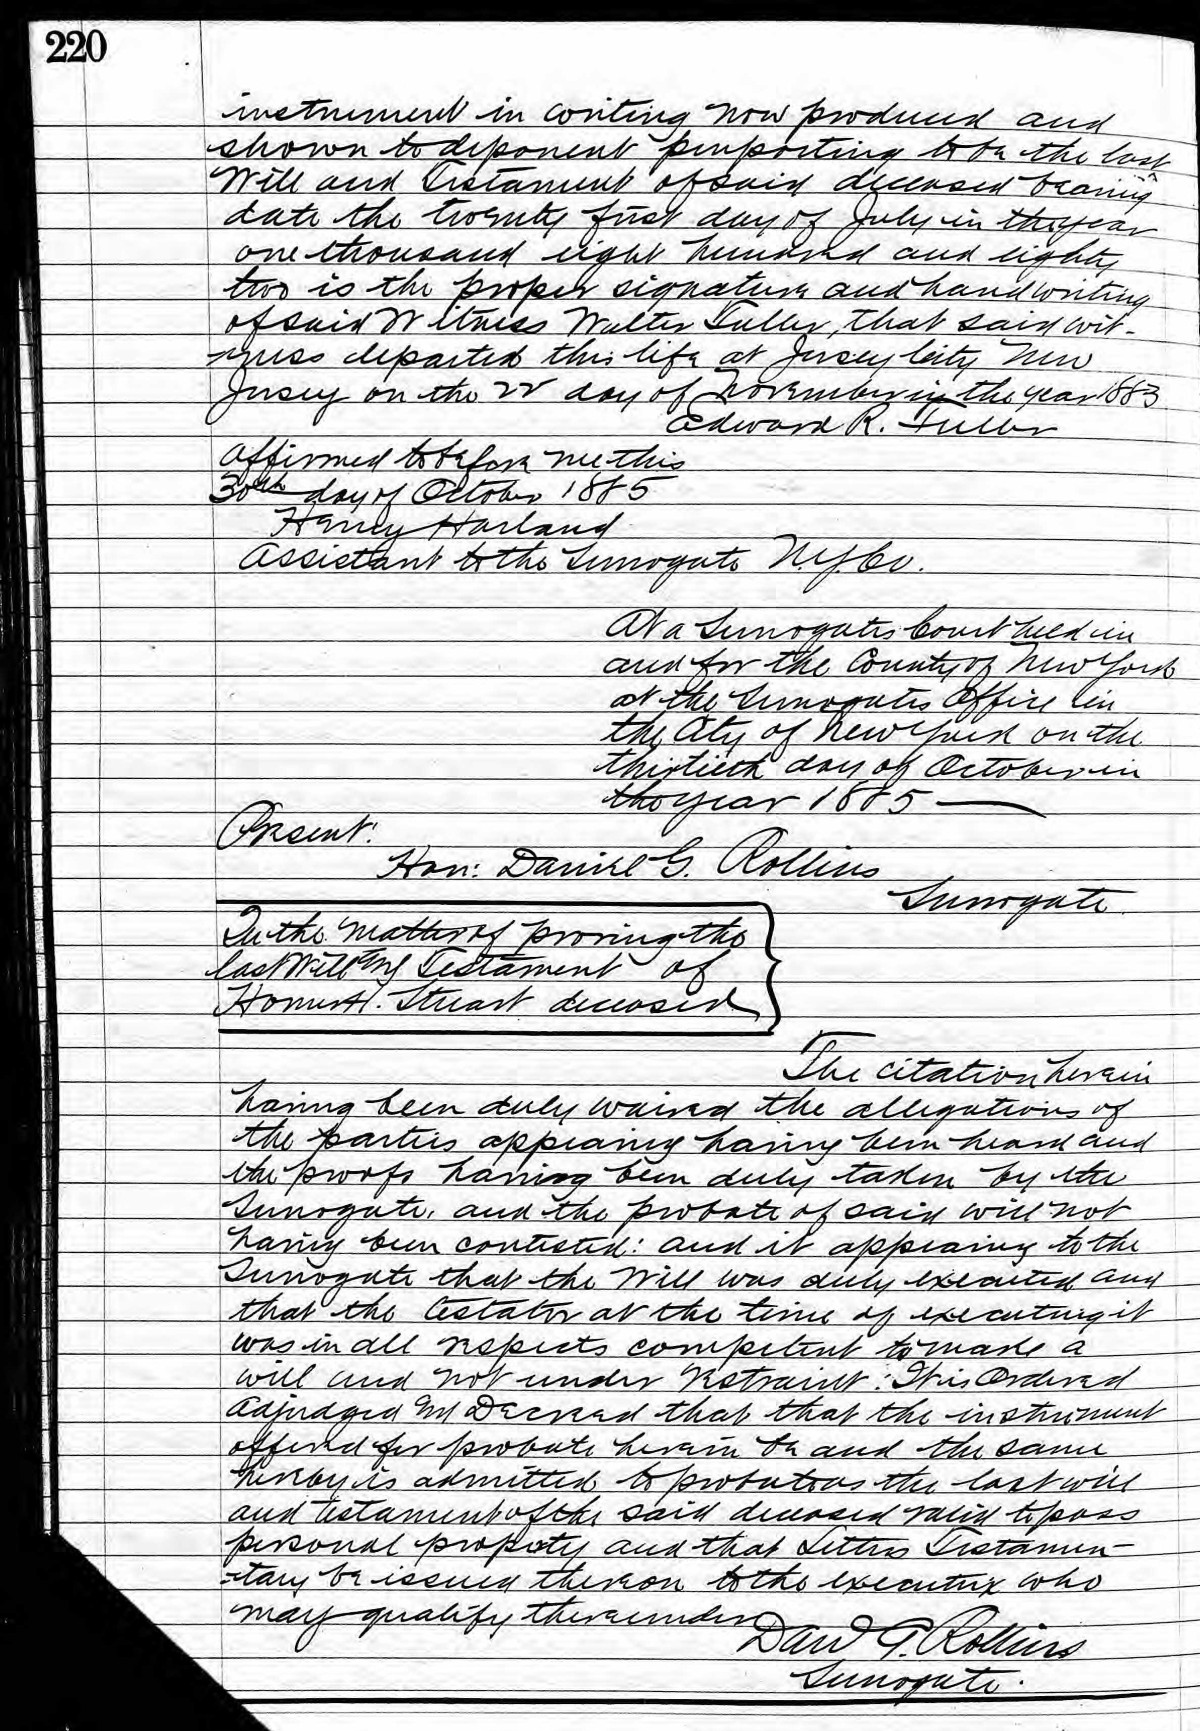 220
instrument in writing now produced and
shown to deponent purporting to be the last
Will and Testament of said deceased bearing
date the twenty first day of July in the year
one thousand eight hundred and eighty
two is the proper signature and handwriting
of said Witness Walter Fuller, that said wit-
-ness departed this life at Jersey City New
Jersey on the 22 day of November in the year 1883
Edward R. Fuller
Affirmed to before me this
30th day of October 1885
Henry Harland
Assistant to the Surrogate N.Y. Co.
At a Surrogates Court held in
and for the County of New York
at the Surrogates Office in
the City of New York on the
thirtieth day of October in
the year 1885
Present:
Hon: Daniel G. Rollins
Surrogate
In the Matter of proving the
last Will and Testament of
Homer H. Stuart deceased
The citation herein
having been duly waived the allegations of
the parties appearing having been heard and
the proofs having been duly taken by the
Surrogate, and the probate of said will not
having been contested: and it appearing to the
Surrogate that the Will was duly executed and
that the testator at the time of executing it
was in all respects competent to make a
will and not under restraint: It is Ordered
Adjudged and Decreed that that the instrument
offered for probate herein be and the same
hereby is admitted to probate as the last will
and testament of the said deceased valid to pass
personal property and that Letters Testamen-
-tary be issued thereon to the executrix who
may qualify thereunder
Danl G. Rollins
Surrogate.